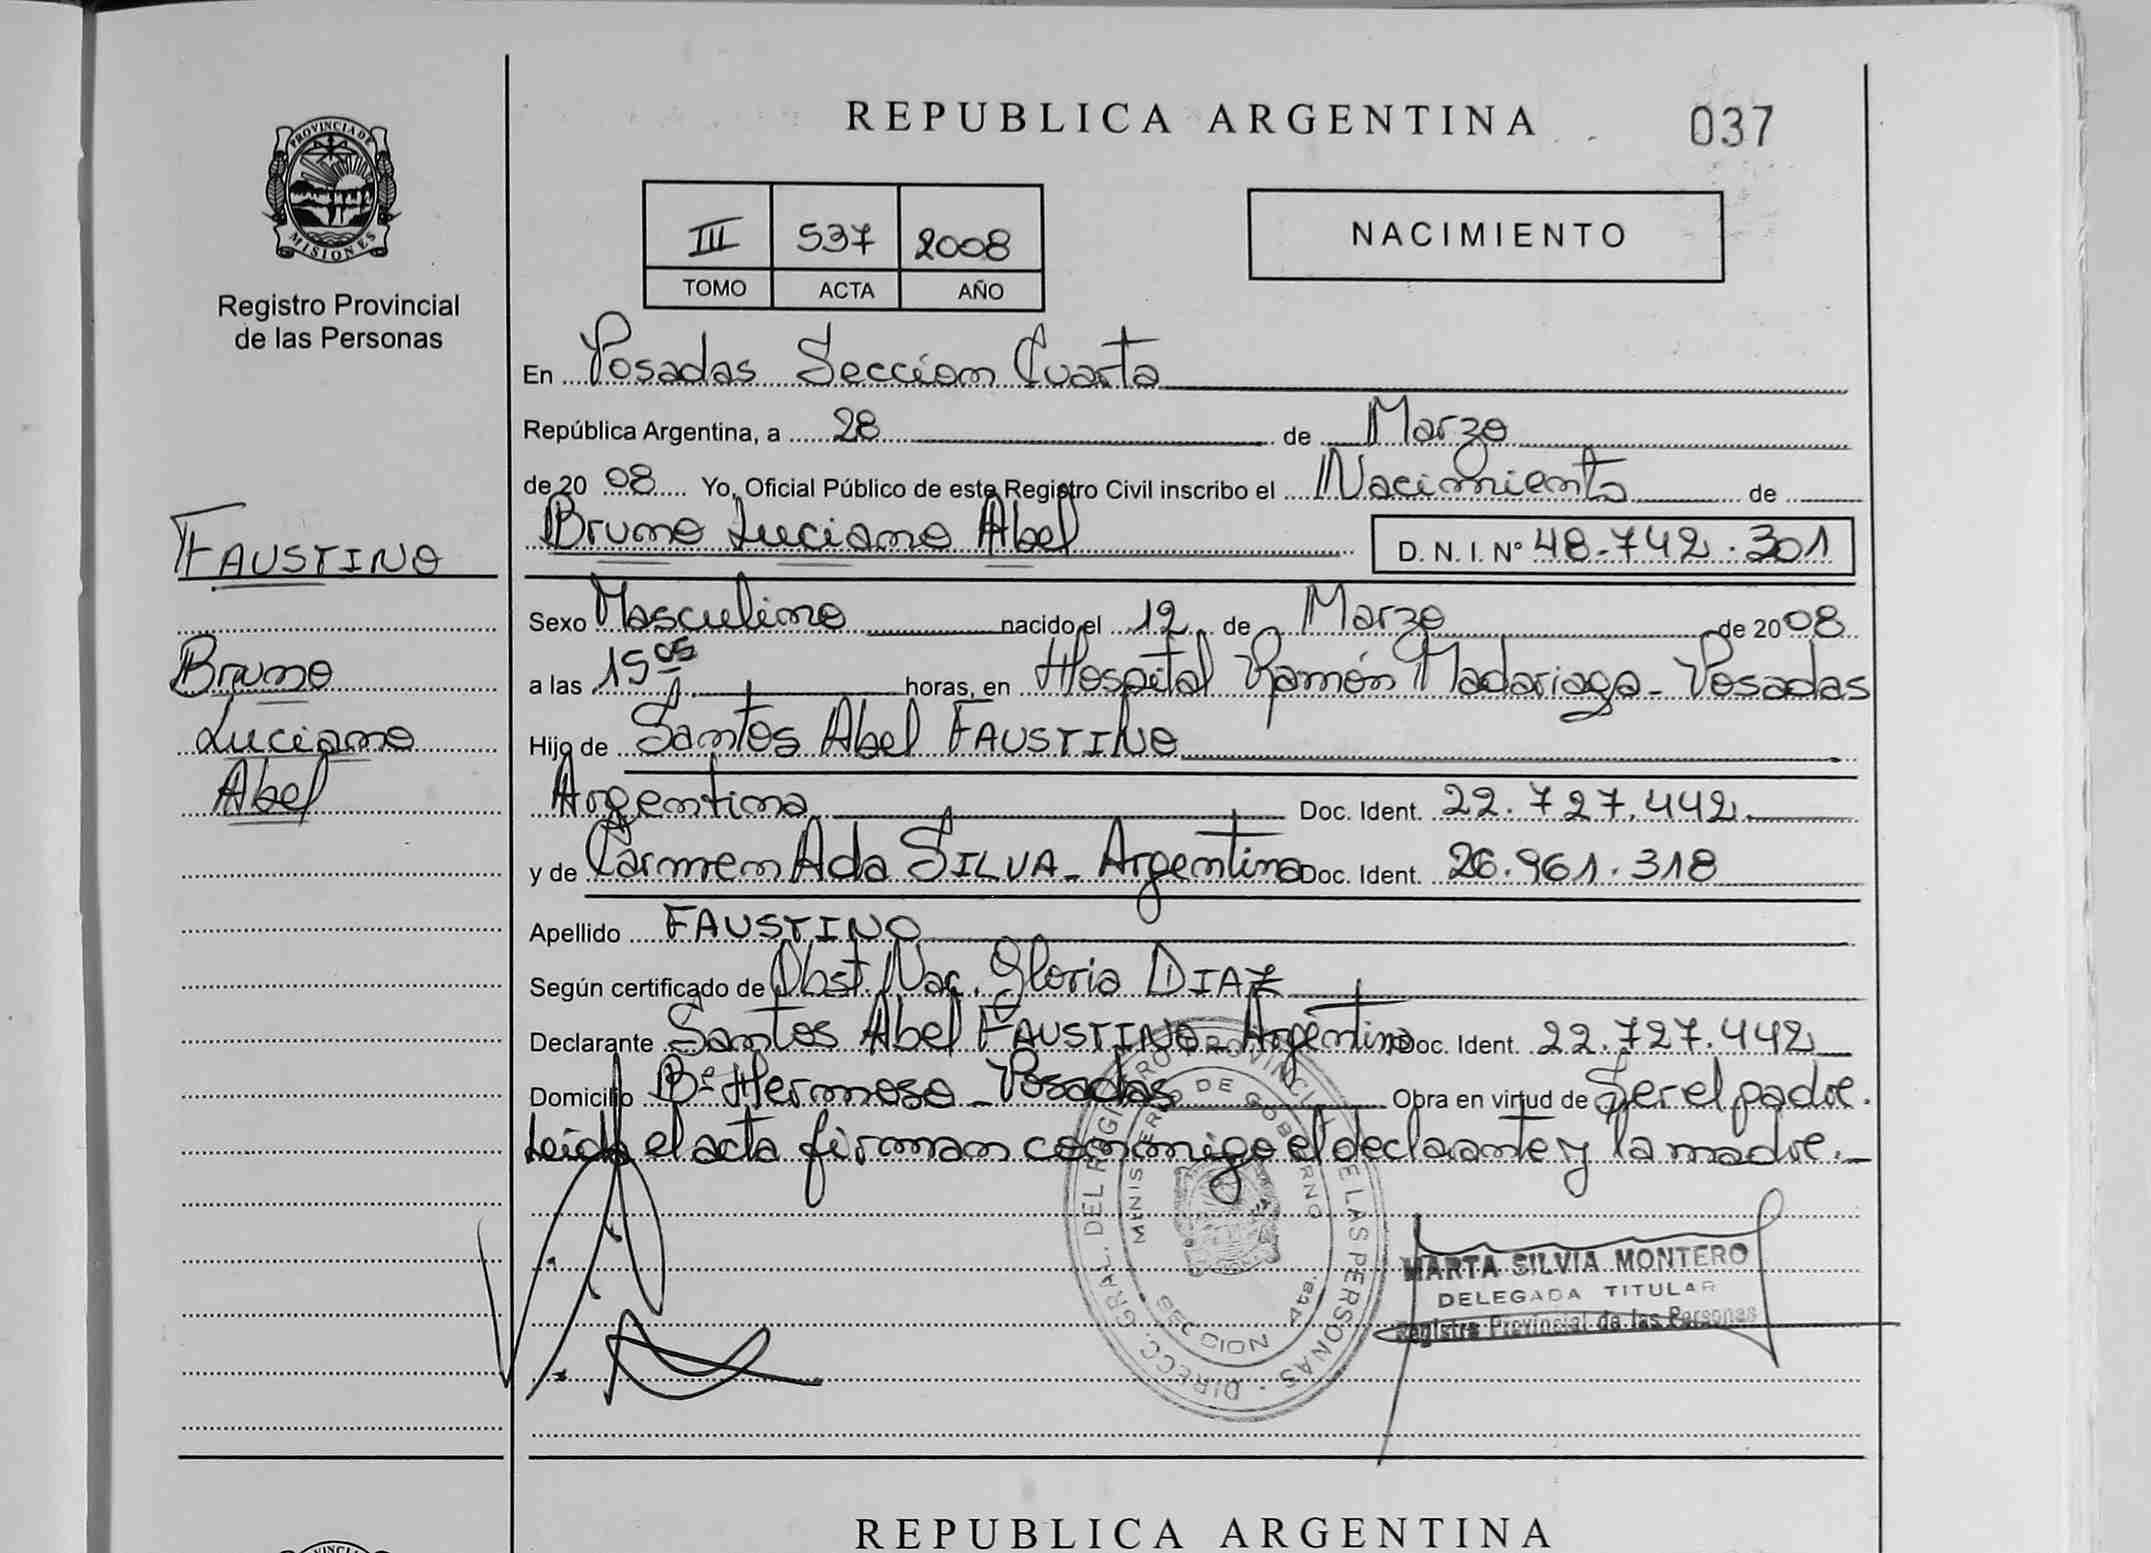 REPUBLICA ARGENTINA
037
PROVINCIA DE
MISIONES
Registro Provincial
de las Personas
III 537 2008
TOMO ACTA AÑO
NACIMIENTO
En Posadas Sección Cuarta
República Argentina, a 28 de Marzo
de 2008 Yo, Oficial Público de este Registro Civil inscribo el Nacimiento de
Bruno Luciano Abel D. N. I. Nº 48.742.301
FAUSTINO
Bruno
Luciano
Abel
Sexo Masculino nacido el 12 de Marzo de 2008
a las 15 05 horas, en Hospital Ramón Madariaga - Posadas
Hijo de Santos Abel FAUSTINO
Argentina Doc. Ident. 22.727.442
y de Carmen Ada SILVA - Argentina Doc. Ident. 26.961.318
Apellido FAUSTINO
Según certificado de Obst. Nac. Gloria DIAZ
Declarante Santos Abel FAUSTINO - Argentino Doc. Ident. 22.727.442
Domicilio Bº Hermoso - Posadas Obra en virtud de Ser el padre.
Leída el acta firman conmigo el declarante y la madre.
DIRECC. GRAL. DEL REGISTRO PROVINCIAL DE LAS PERSONAS
MINISTERIO DE GOBIERNO
SECCION 4ta.
MARTA SILVIA MONTERO
DELEGADA TITULAR
Registro Provincial de las Personas
REPUBLICA ARGENTINA